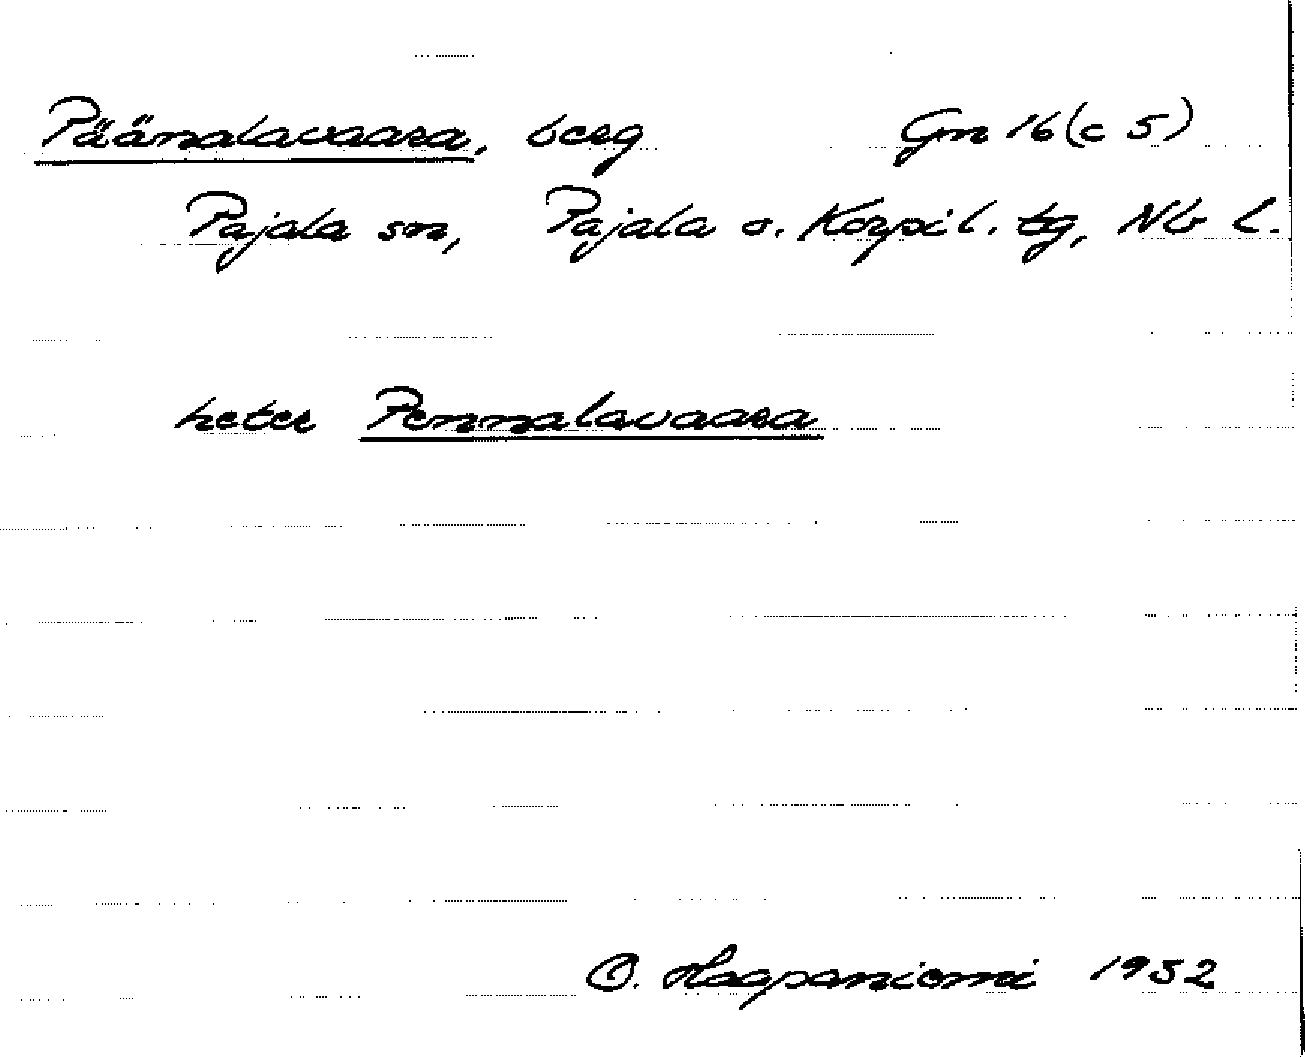 Päänalavaara, berg Gn 16 (c 5)
Pajala sn, Pajala o. Korpil. tg, Nb l.
heter Pennalavaara
O. Haapaniemi 1952